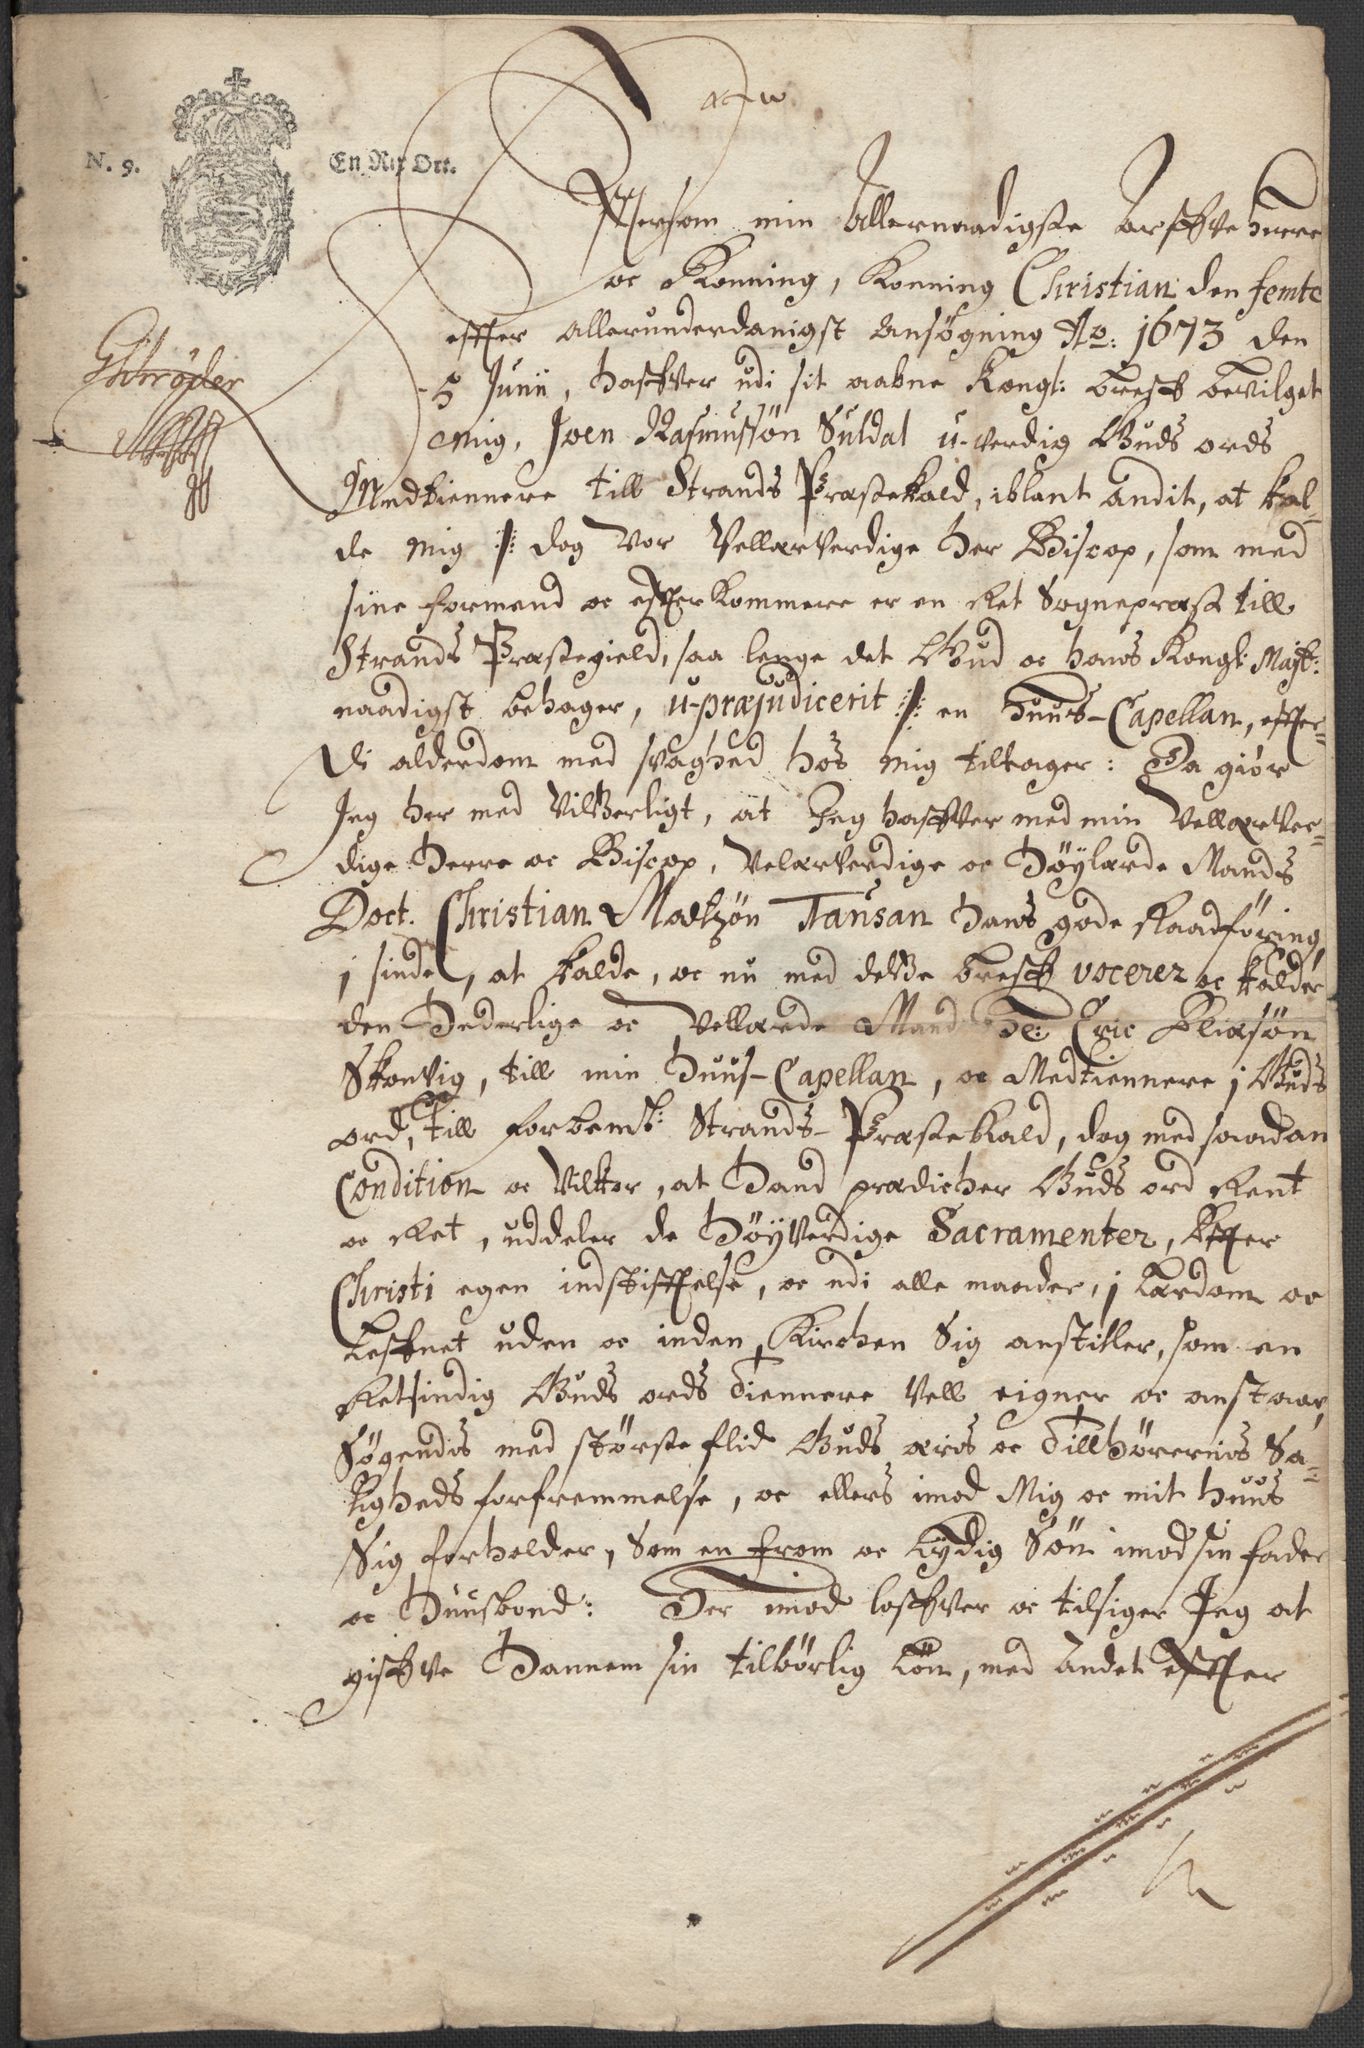 N. 9.
En Rix Ort.
Schrøder
Effersom min Allernaadigste Arffve Herre
oc Konning, Konning Christian den femte
effter allerunderdanigst Ansøgning Ao: 1673 den
5 Junii, haffver udi sit aabne Kongl: breff bevilget
mig, Joen Rasmussøn Suldal u-verdig Guds ords
Medtiennere till Strands Præstekald, iblant andit, at kal-
de mig /: dog vor Vellærverdige her Biscop, som med
sine formend oc effterkommere er en Ret Sognepræst till
Strands Præstegield, saa lenge det Gud oc hans Kongl: Mayt:
naadigst behager, u-præjudicerit :/ en Huus-Capellan, effter-
di alderdom med svaghed hos mig tiltager: Da giør
Jeg her med vitterligt, at Jeg haffver med min Vellærver-
dige Herre oc Biscop, Velærverdige oc Høylærde Mands
Doct. Christian Madtzøn Tausan hans gode Raadføring
i sinde, at kalde, oc nu med dette breff vocerer oc kalder
den Hederlige oc Vellærde Mand Hr: Eric Eliasøn
Skonvig, till min Huus-Capellan, oc Medtiennere i Guds
ord, till forbemt: Strands-Præstekald, dog med saadan
Condition oc vilkor, at Hand prædicher Guds ord Rent
oc Ret, uddeler de Høyverdige Sacramenter, Effter
Christi egen indstifftelse, oc udi alle maader, i Lærdom oc
Leffnet uden oc inden Kirchen sig anstiller, som en
Retsindig Guds ords Tiennere Vell eigner oc anstaar,
Søgendis med største flid Guds æris oc Tillhørernis Sa-
ligheds forfremmelse, oc ellers imod Mig oc mit huus
Sig forholder, Som en from oc Lydig Søn imod sin fader
oc Huusbond: Der imod loffver oc tilsiger Jeg at
giffve Hannem sin tilbørlig Løn, med Andet effter